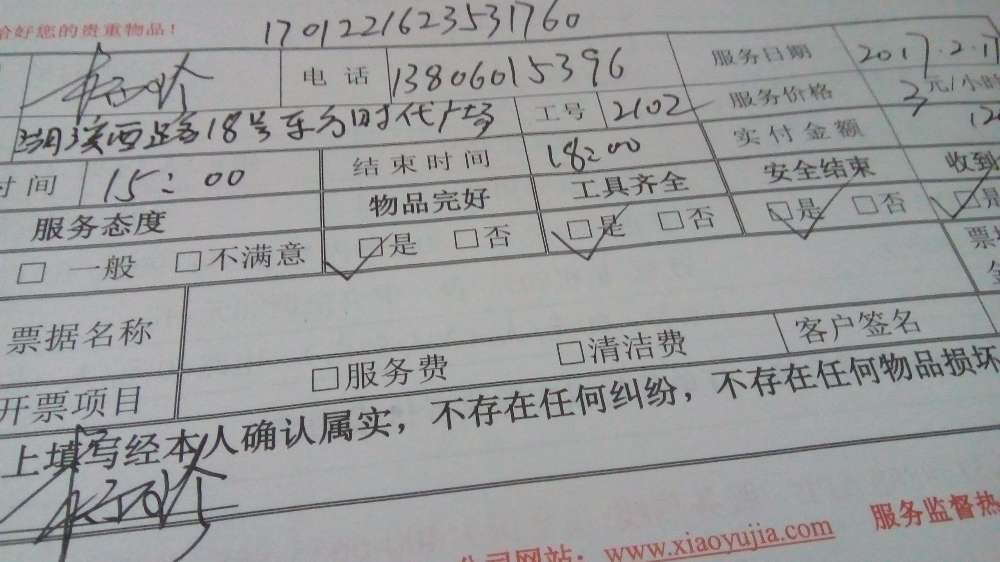 好您的贵重物品！ 17012216235 31760
电话 13806015396 服务日期 2017.2.17
湖滨西路18号东方时代广场 工号 2102 服务价格 元/小时
时间 15:00 结束时间 18:00 实付金额
服务态度 物品完好 工具齐全 安全结束 收到
□ 一般 □不满意 □是 □否 □是 □否 □是 □否 □是
票据名称
开票项目 □服务费 □清洁费 客户签名
上填写经本人确认属实，不存在任何纠纷，不存在任何物品损坏
公司网站：www.xiaoyujia.com 服务监督热